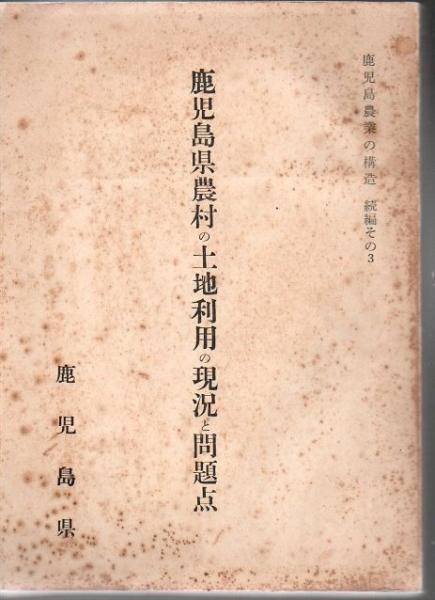 鹿児島農業の構造 続編その3
鹿児島県農村の土地利用の現況と問題点
鹿児島県